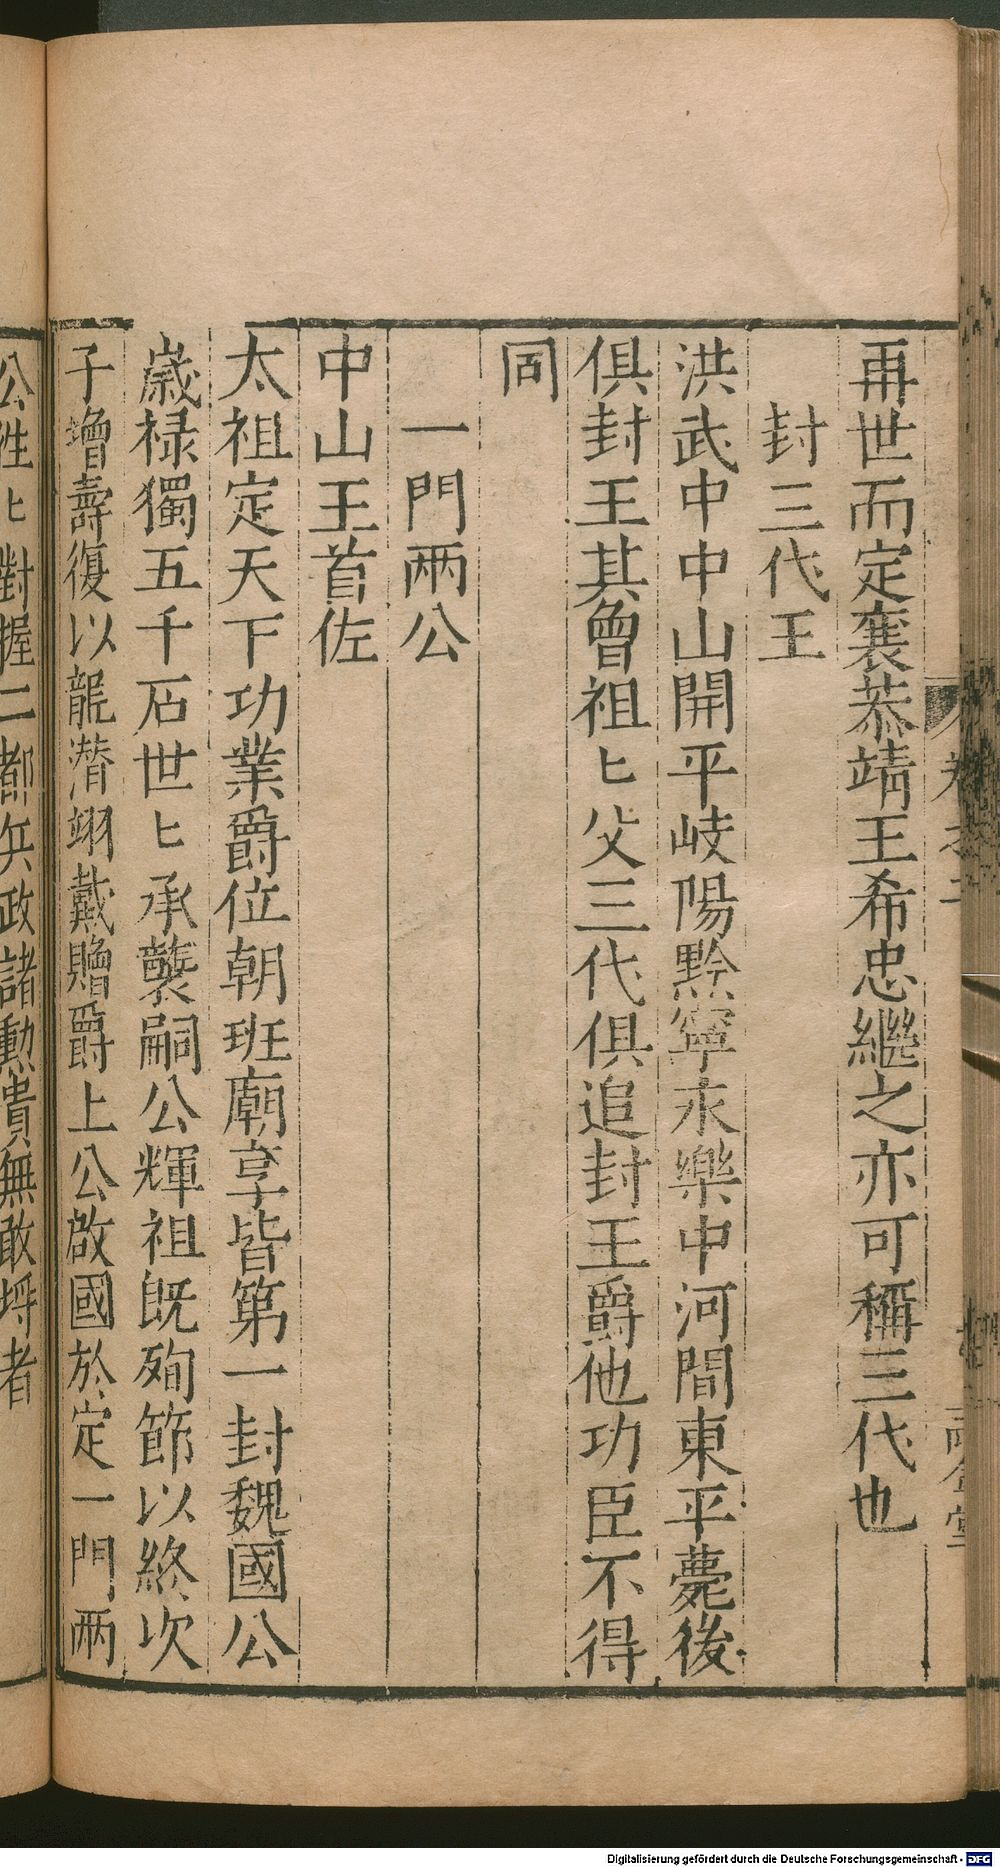 再世而定襄恭靖王希忠繼之亦可稱三代也
封三代王
洪武中中山開平岐陽黔寧永樂中河間東平薨後
俱封王其曾祖匕父三代俱追封王爵他功臣不得
同
一門兩公
中山王首佐
太祖定天下功業爵位朝班廟享皆第一封魏國公
歲祿獨五千石世匕承襲嗣公輝祖既殉節以終次
子增壽復以龍潛翊戴贈爵上公啟國於定一門兩
公性匕對握二都兵政諸勳貴無敢埒者
Digitalisierung gefördert durch die Deutsche Forschungsgemeinschaft - DFG